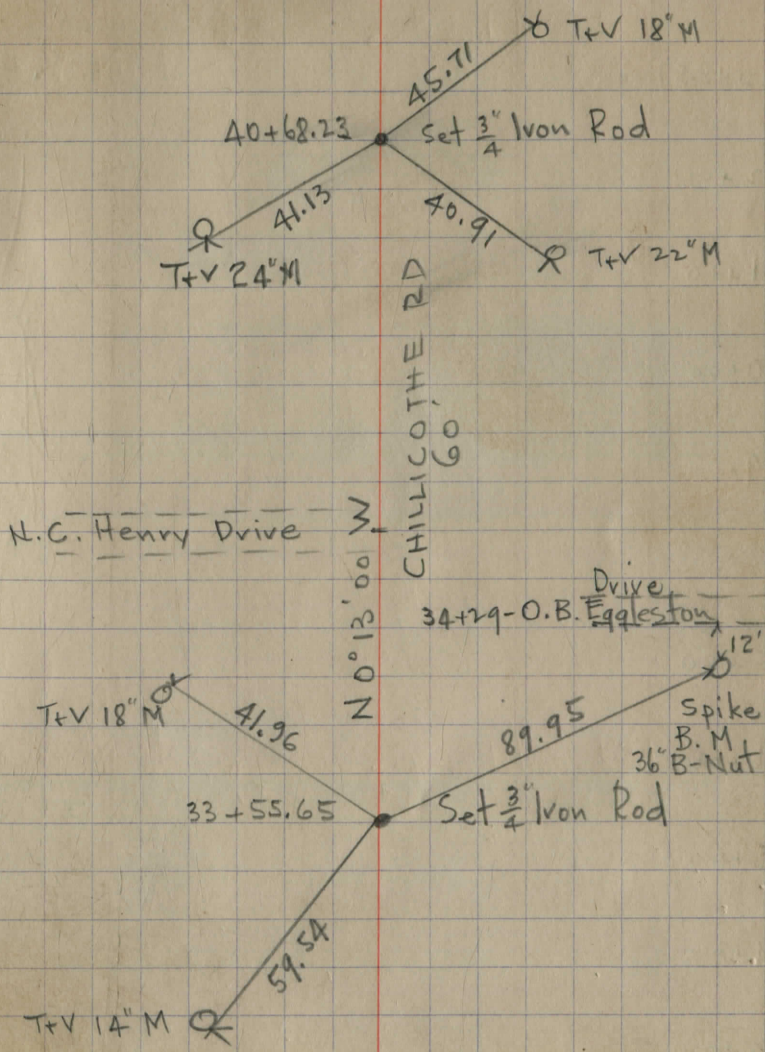 T+V 18" M
45.71
40+68.23
Set 3/4" Iron Rod
41.13
40.91
T+V 24" M
T+V 22" M
CHILLICOTHE RD
60'
N.C. Henry Drive
N 0° 13' 00 W
Drive
34+29-O.B. Eggleston
12'
T+V 18" M
41.96
89.95
Spike
B.M.
36" B-Nut
33+55.65
Set 3/4" Iron Rod
59.54
T+V 14" M